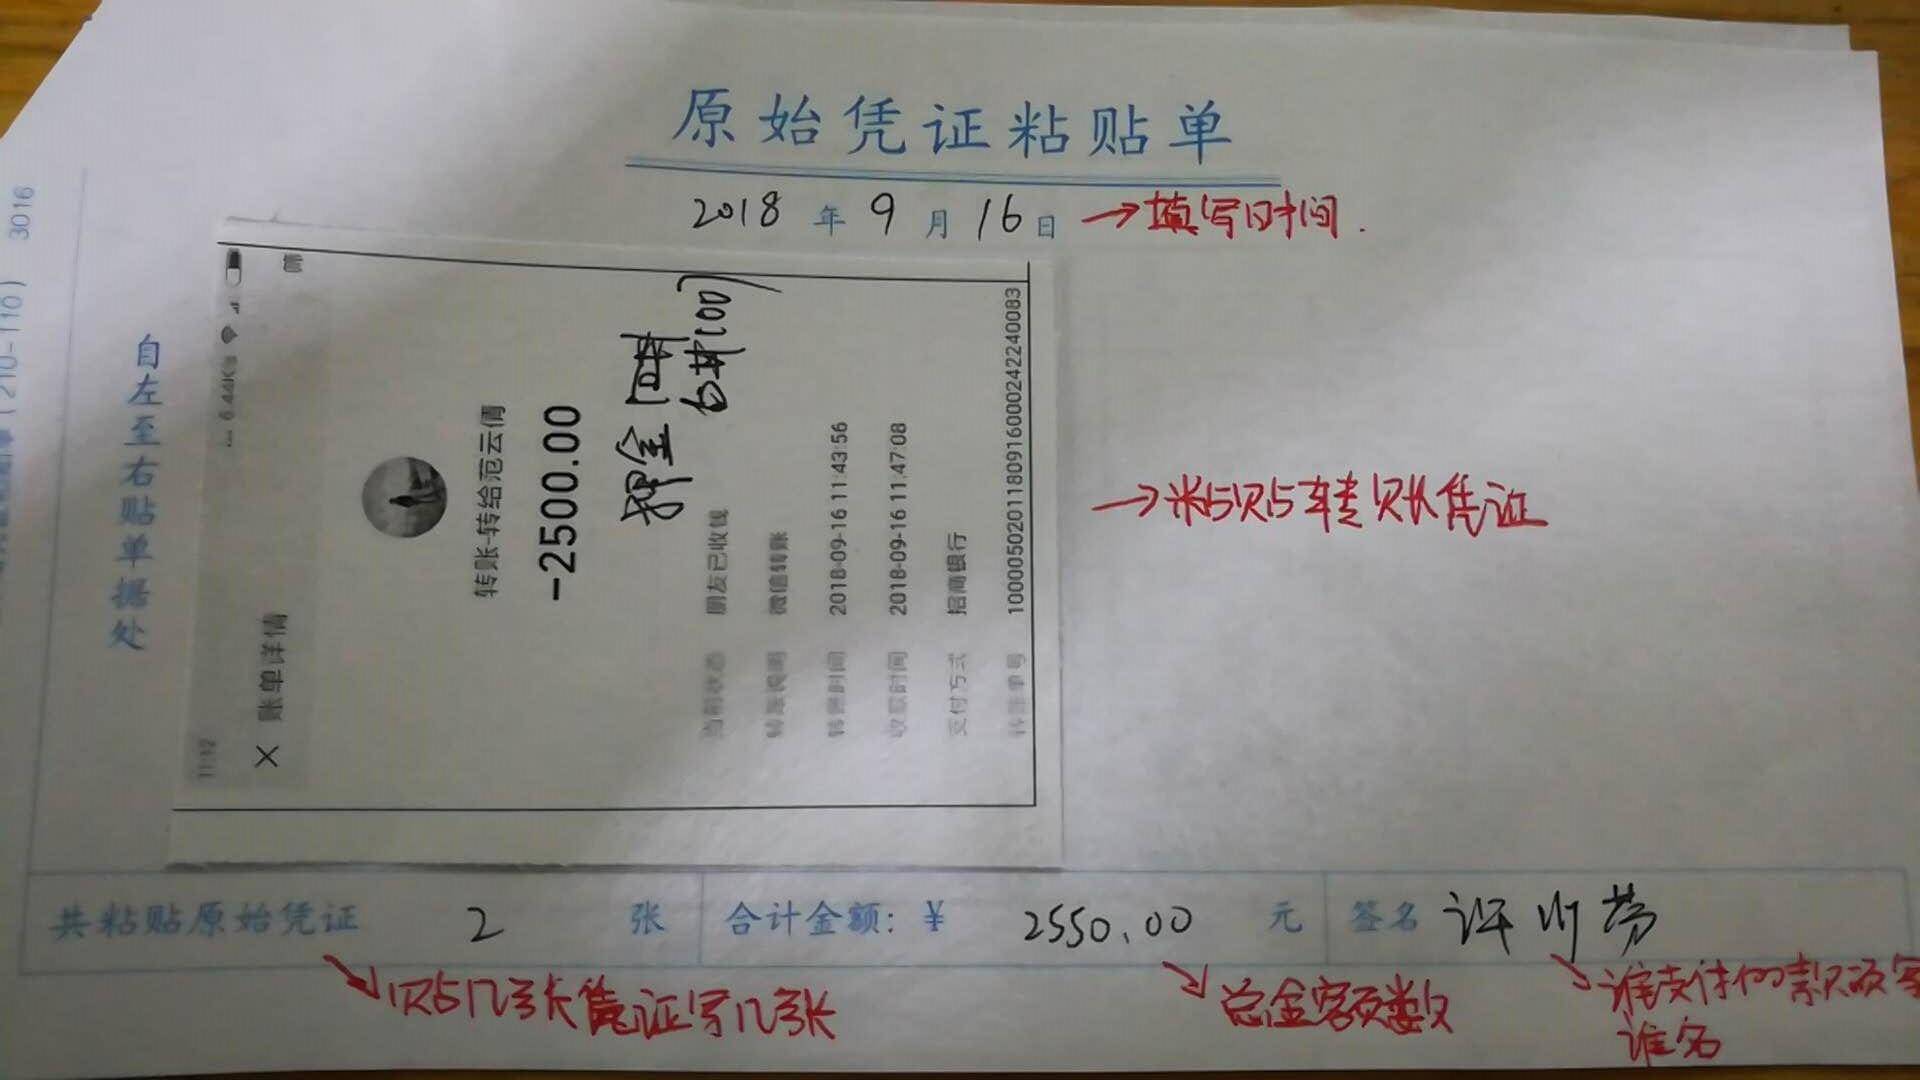 原始凭证粘贴单
2018 年 9 月 16 日 →填写时间.
3016
(210-110)
自左至右贴单据处
11:12
... 6.44K/s
× 账单详情
转账-转给范云倩
-2500.00
押金
当前状态 朋友已收钱
转账说明 微信转账
转账时间 2018-09-16 11:43:56
收款时间 2018-09-16 11:47:08
支付方式 招商银行
转账单号 1000050201180916000242240083
→粘贴转账凭证
共粘贴原始凭证 2 张 合计金额:¥ 2550.00 元 签名
贴几张凭证写几张
总金额数
谁支付的款项写
谁名